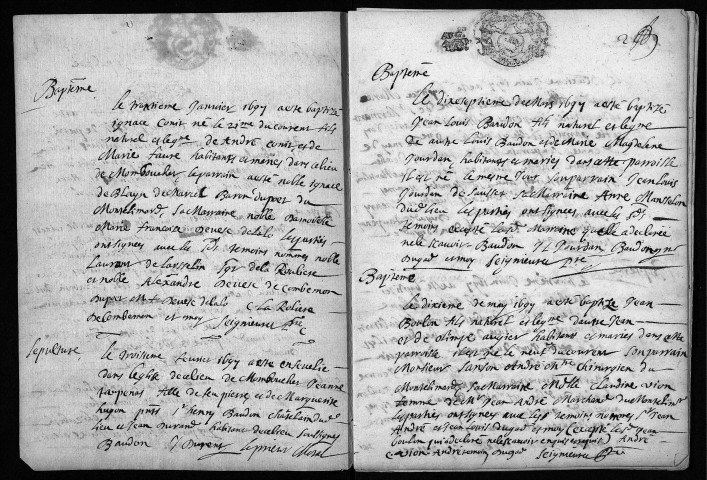 Baptême
le trentieme janvier 1697 a esté baptizé
ignace Comis né le 21me du courent fils
naturel et legme de André Comis, et de
Marie faure habitants et mariés dans ce lieu
de Momboucher le parrain a esté noble ignace
de Blayn de Marcel Baron du poet du
Montelimard, sa Marraine noble Damoiselle
Marie francoise Deuese de lalo les parties
ont signés avec les temoins nommes noble
Laurent de la Sgr de la Roliere
et noble Alexandre Deuese de Combemon
Dupoet M F Deuese de lalo La Roliere
Decombemon et moy Seigneuret
Sepulture
le troisieme feurier 1697 a esté enseuelie
dans leglise de ce lieu de Momboucher Jeanne
fille de feu pierre et de Marguerite
hugon pnts Sr henry Baudon châtelain du
lieu et Jean durand habitant de ce lieu soussignes
Baudon J Durant
Baptême
Le dixseptieme de Mars 1697 a esté baptizé
Jean Louis Baudon fils naturel et legme
de autre Louis Baudon et de Marie Magdeleine
Jourdan, habitants et mariés dans cette parroisse
il est né le mesme jour son parrain Jean Louis
Jourdan de Sausset sa Marraine Anne
du dlieu les parties ont signés avec les sds
temoins excepté lad Marraine quelle a declaré
ne le scavoir Baudon J L Jourdan Baudon
Dugat et moy Seigneuret ptre
Baptême
Le dixieme de may 1697 a esté baptizé Jean
Boulon fils naturel et legme dautre Jean
et de Olimpe augier habitants et mariés dans cette
parroisse il est né le neuf du courent son parrain
Monsieur Sanson André Mtre chirurgien du
Montelimard sa Marraine Mlle claudine vion
femme de Mr Jean André Marchand du Montelimard
les parties ont signés avec les temoins nommes Sr Jean
André et Jean Louis Dugat et moy (excepté led Jean
boulon qui a declaré ne le scavoir enquis et requis) André
vion André temoin Dugat Seigneuret